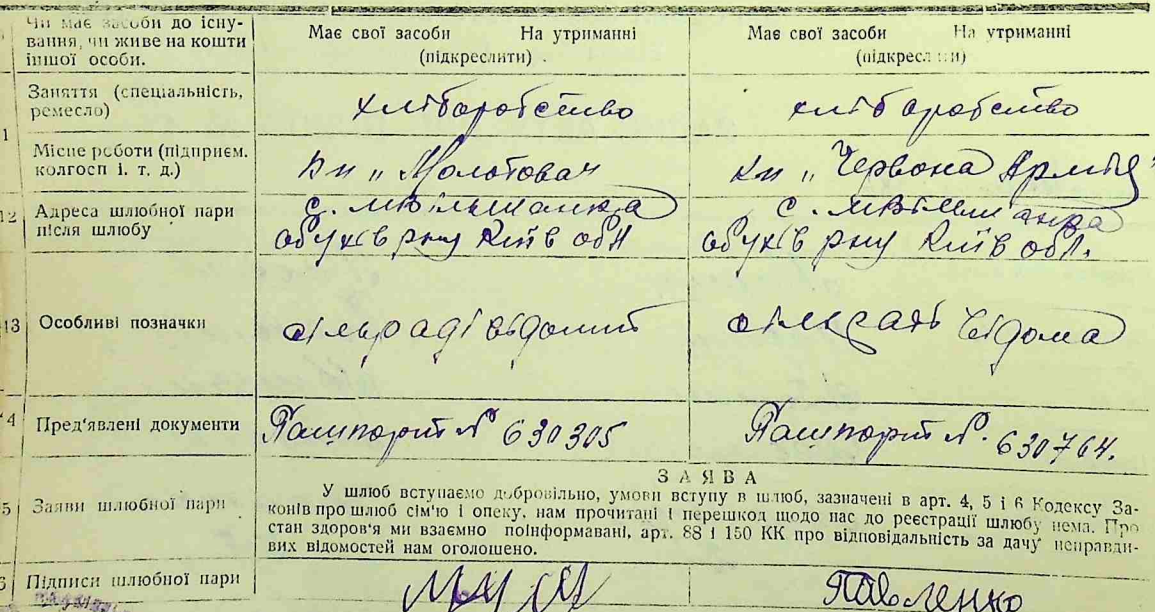 Чи має засоби до існу-
вання, чи живе на кошти
іншої особи.
Має свої засоби На утриманні
(підкреслити)
Має свої засоби На утриманні
(підкреслити)
1
Заняття (спеціальність,
ремесло)
хліборобство
хліборобство
Місце роботи (підприєм.
колгосп і. т. д.)
кн „Молотова"
кн „Червона Армія"
12 Адреса шлюбної пари
після шлюбу
с.
обухів рну Київ обл
с.
обухів рну Київ обл.
13 Особливі позначки
сільраді відомий
відома
4 Пред'явлені документи
Пашпорт № 630305
Пашпорт №. 630764.
ЗАЯВА
5 Заяви шлюбної пари
У шлюб вступаємо добровільно, умови вступу в шлюб, зазначені в арт. 4, 5 і 6 Кодексу За-
конів про шлюб сім'ю і опеку, нам прочитані і перешкод щодо нас до реєстрації шлюбу нема. Про
стан здоров'я ми взаємно поінформавані, арт. 88 і 150 КК про відповідальність за дачу неправди-
вих відомостей нам оголошено.
6 Підписи шлюбної пари
Павленко